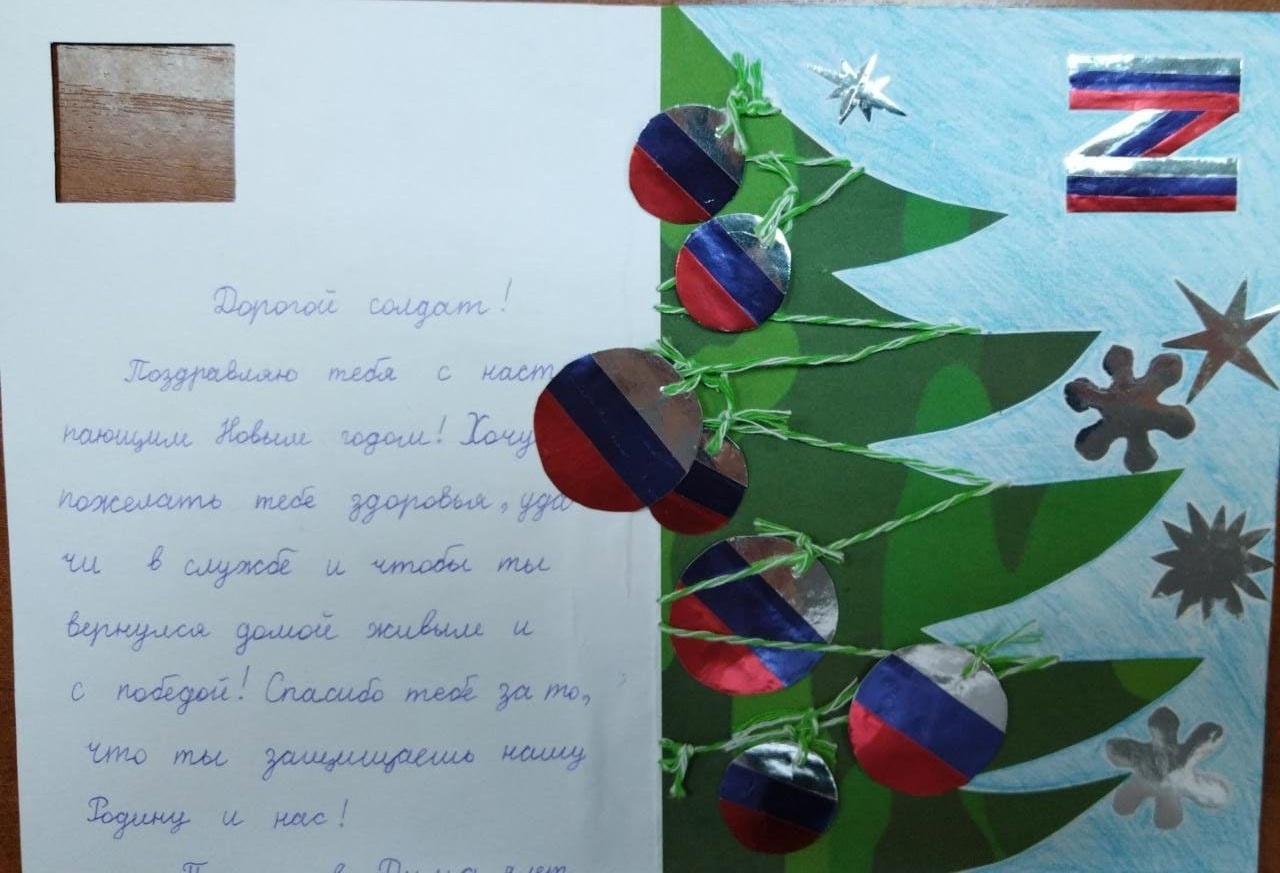 Дорогой солдат!
Поздравляю тебя с наст
пающим Новым годом! Хочу
пожелать тебе здоровья, уда
чи в службе и чтобы ты
вернулся домой живым и
с победой! Спасибо тебе за то,
что ты защищаешь нашу
Родину и нас!
Z